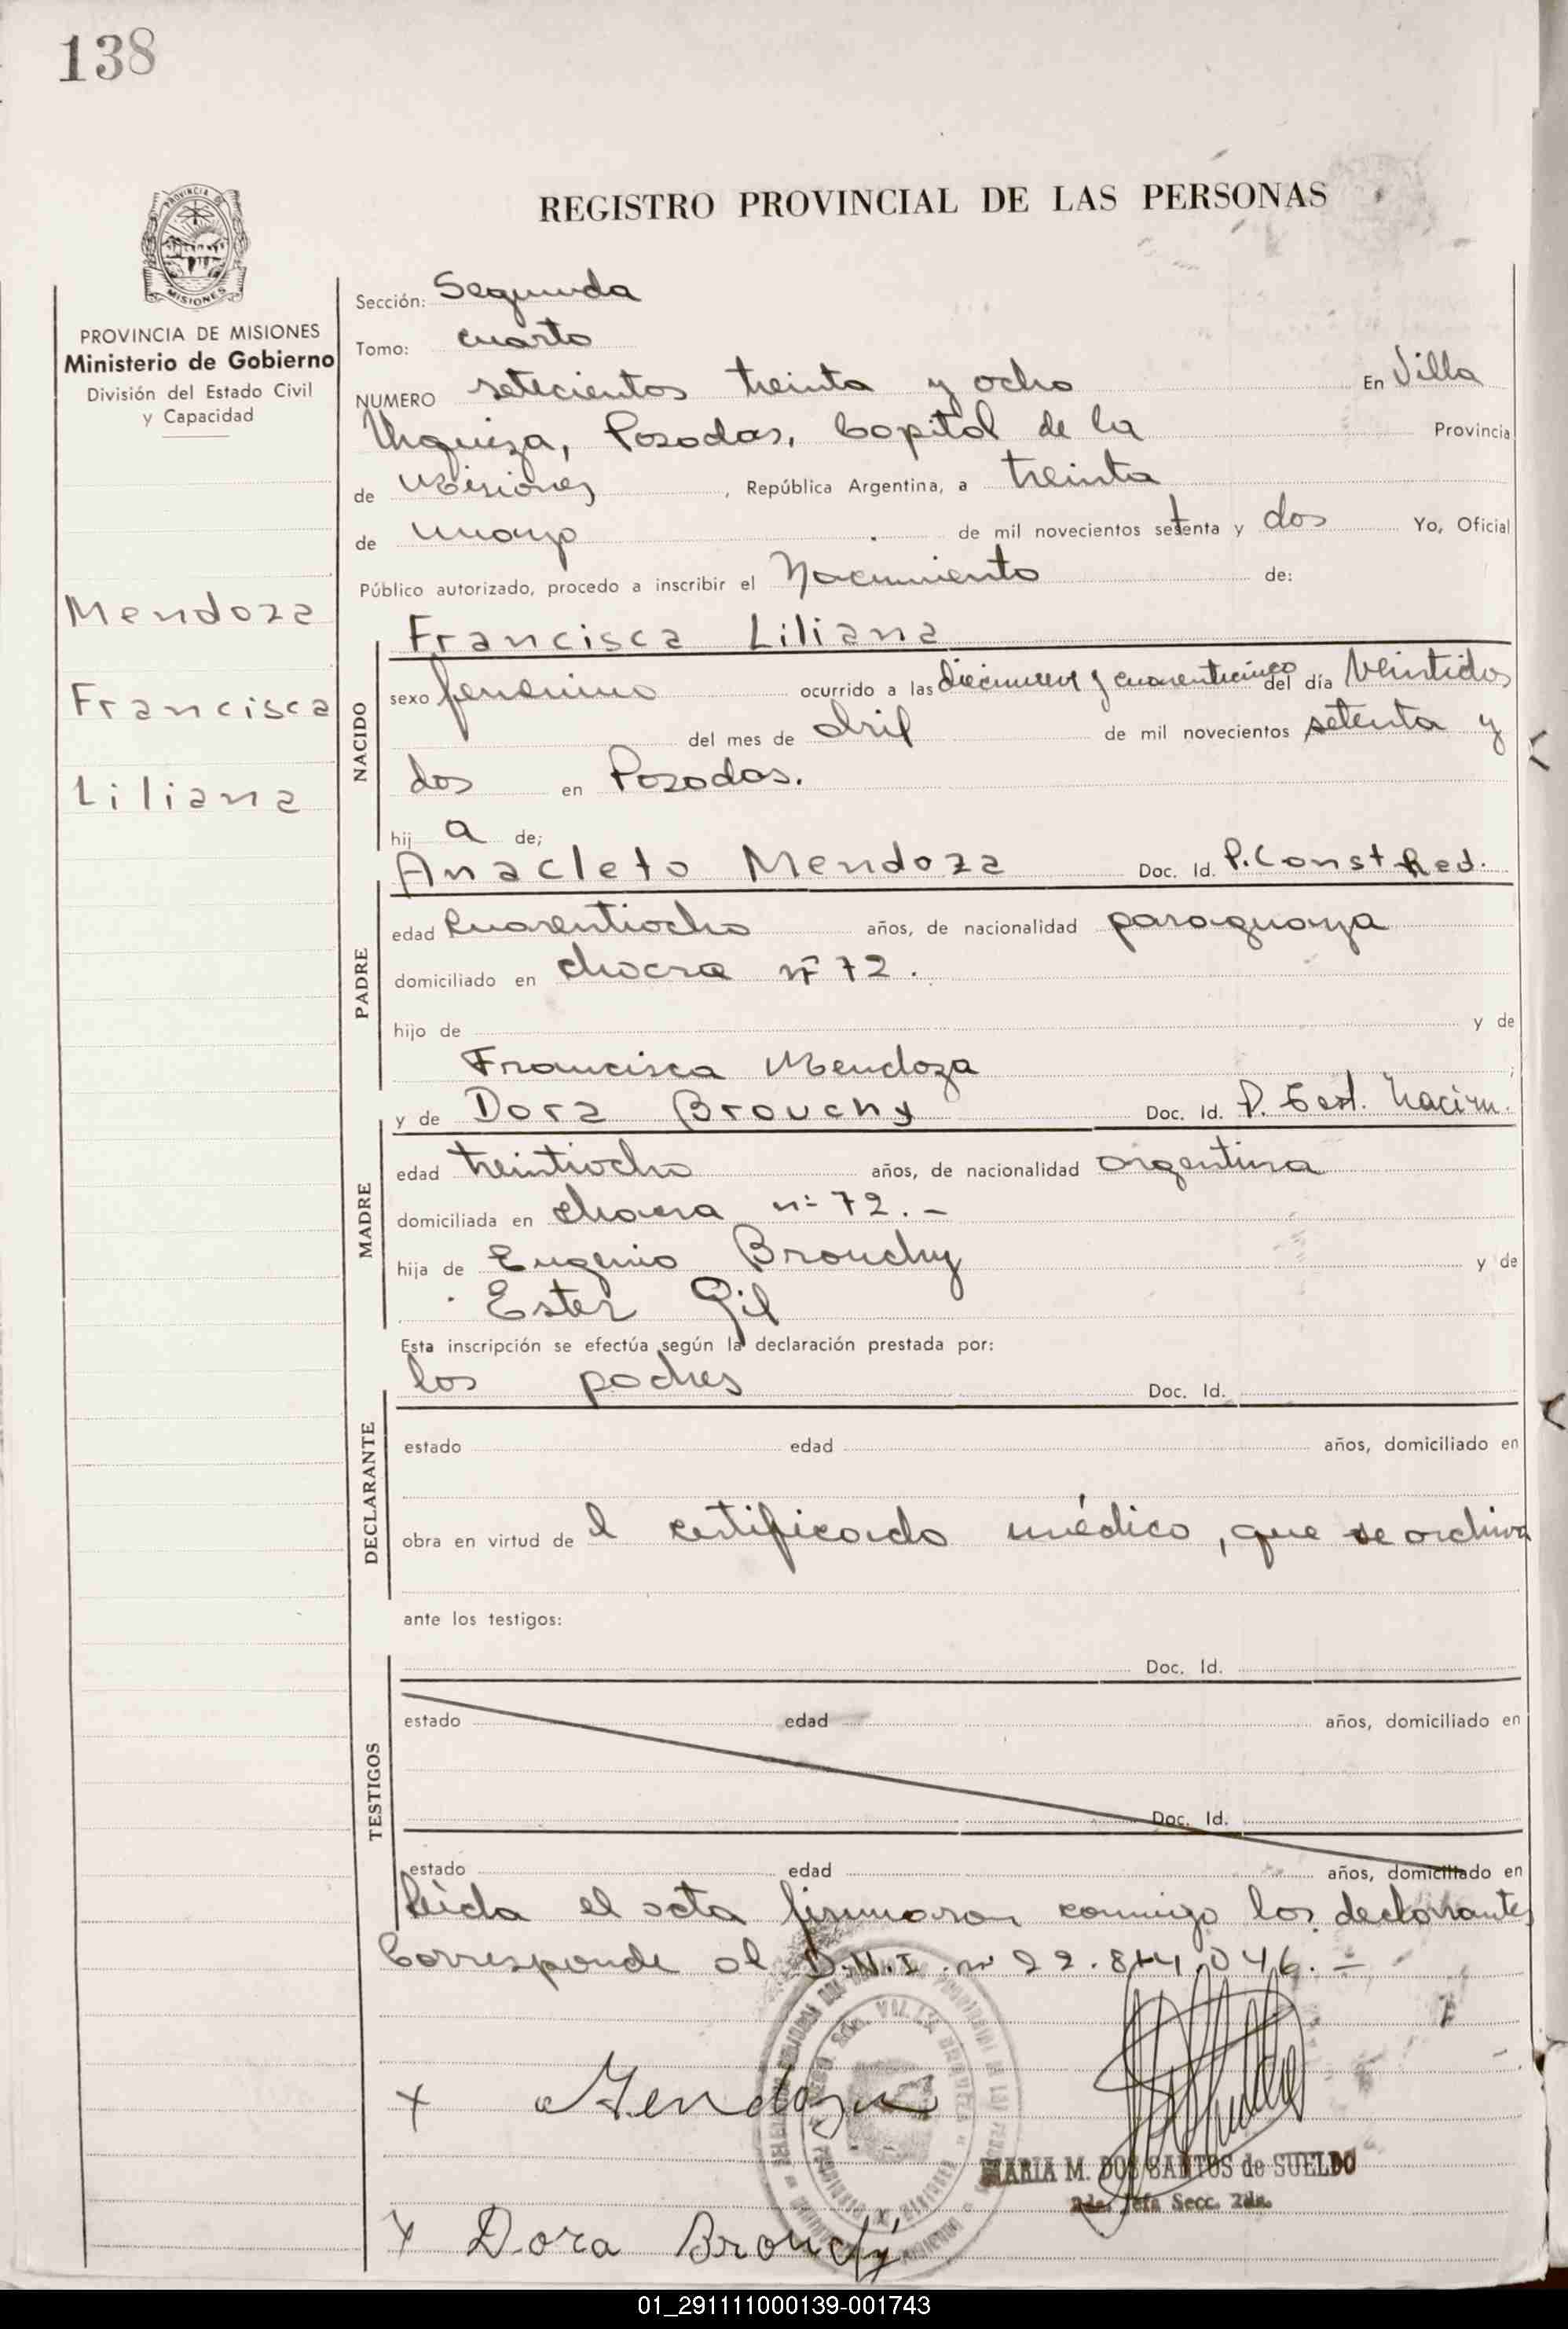 138
PROVINCIA DE
MISIONES
REGISTRO PROVINCIAL DE LAS PERSONAS
PROVINCIA DE MISIONES
Ministerio de Gobierno
División del Estado Civil
y Capacidad
Mendoza
Francisca
Liliana
Sección: Segunda
Tomo: cuarto
NUMERO setecientos treinta y ocho En Villa
Urquiza, Posadas, Capital de la Provincia
de Misiones, República Argentina, a treinta
de mayo de mil novecientos setenta y dos Yo, Oficial
Público autorizado, procedo a inscribir el Nacimiento de:
NACIDO
Francisca Liliana
sexo femenino ocurrido a las diecinueve y cuarenticinco del día veintidos
del mes de abril de mil novecientos setenta y
dos en Posadas.
hij a de;
PADRE
Anacleto Mendoza Doc. Id. P. Const Red.
edad cuarentiocho años, de nacionalidad paraguaya
domiciliado en chacra nº 72.
hijo de y de
Francisca Mendoza
MADRE
y de Dora Brouchy Doc. Id. P. Cert. Nacim.
edad treintiocho años, de nacionalidad argentina
domiciliada en chacra nº 72. -
hija de Eugenio Brouchy y de
Ester Gil
Esta inscripción se efectúa según la declaración prestada por:
DECLARANTE
los padres Doc. Id.
estado edad años, domiciliado en
obra en virtud de l certificado médico, que se archiva
ante los testigos:
TESTIGOS
Doc. Id.
estado edad años, domiciliado en
Doc. Id.
estado edad años, domiciliado en
Leída el acta firmaron conmigo los declarantes
Corresponde al D.N.I. nº
Mendoza
MARIA M. DOS SANTOS de SUELDO
Jefa Secc. 2da.
Dora Brouchy
01_291111000139-001743